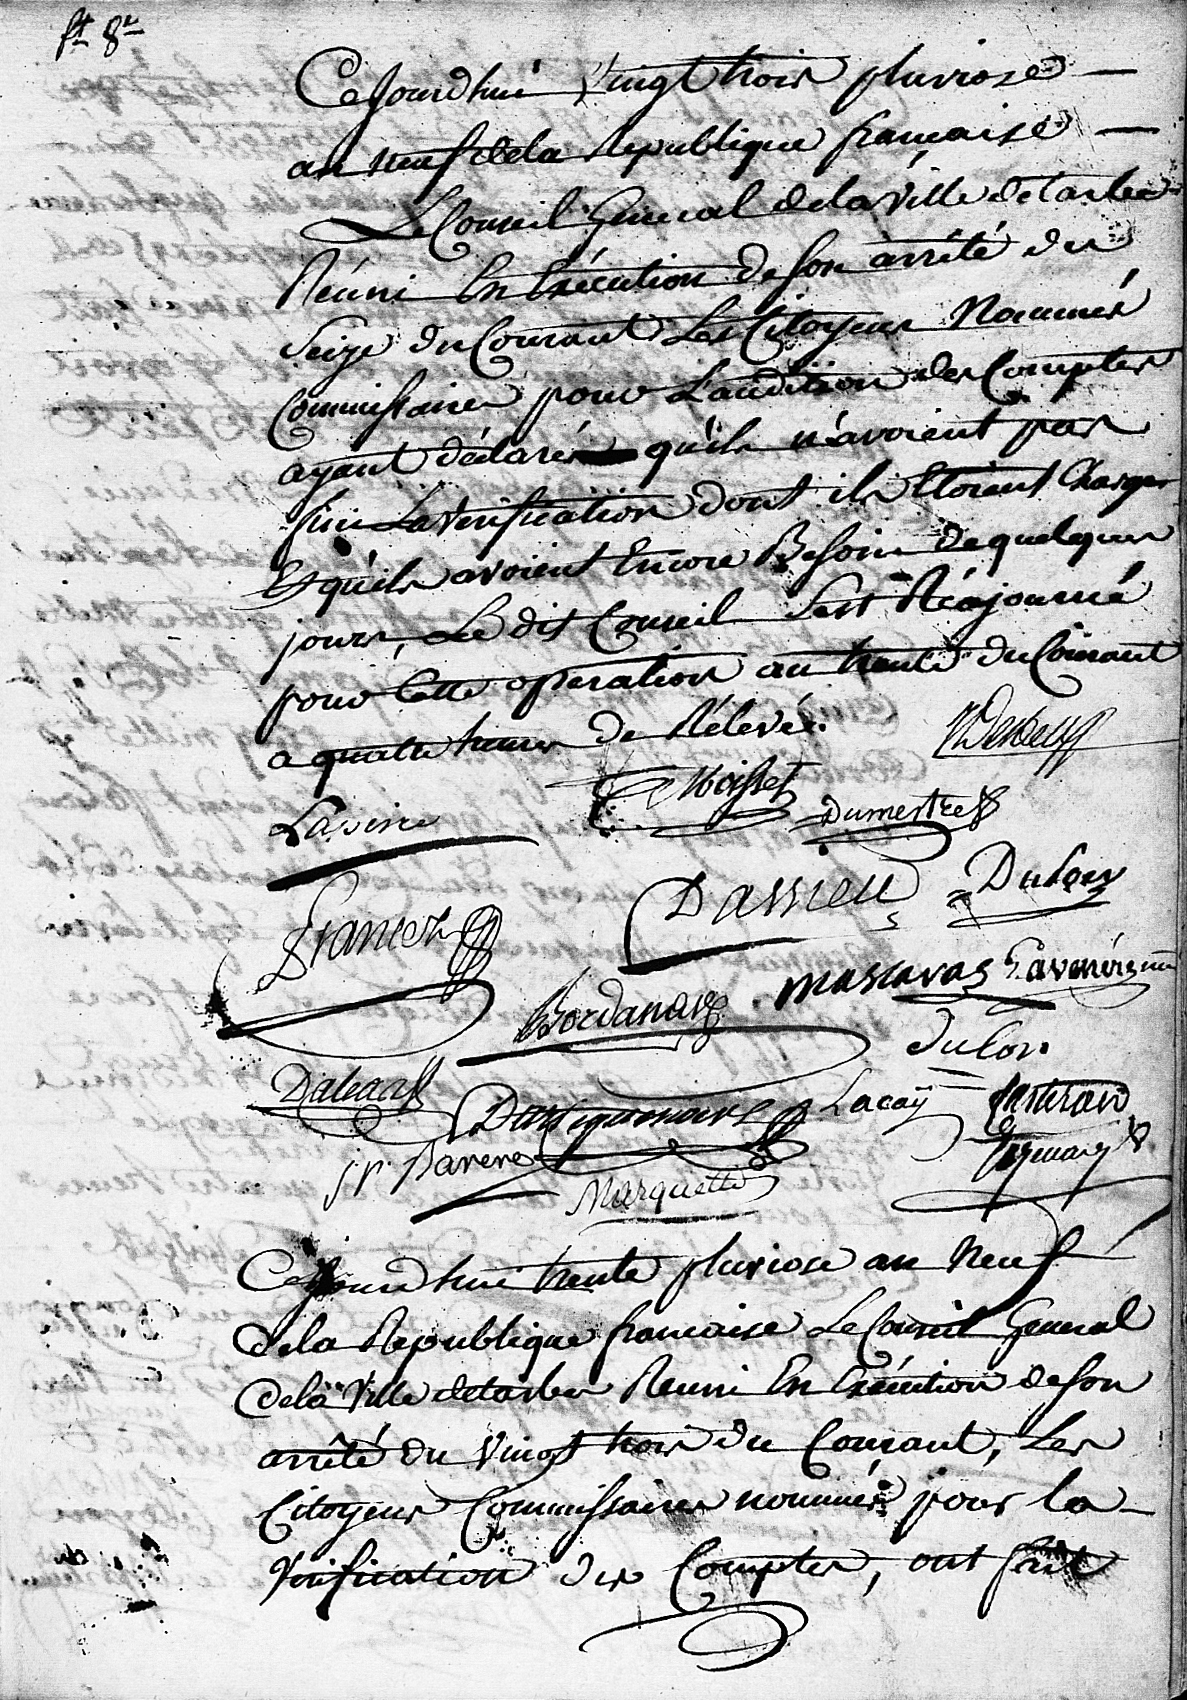 Cejourdhui vingt trois pluviose
an neuf de la Republique francaise
Le Conseil Général de la ville de tarbes
Réuni En Exécution de son arrêté du
Seize du Courant Les Citoyens Nommés
Commissaires pour L'audition des Comptes
ayant déclaré qu'ils n'avoient pas
fini La verification dont ils Etoient Charges
Et qu'ils avoient Encore Besoin de quelques
jours, Le dit Conseil S'est Réajourné
pour Cette operation au trente du Courant
a quatre heures de Rélevée.
Moisset
Laverre Dumestre
Dassieu
Bordanave mascaras
Dulon
Lacay
jp. Barere
Marquette
Cejourdhui trente pluviose an Neuf
de la Republique francaise Le Conseil General
de la ville de tarbes Reuni En Exécution de son
arrêté du vingt trois du Courant, Les
Citoyens Commissaires nommés pour la
Vérification des Comptes, ont fait